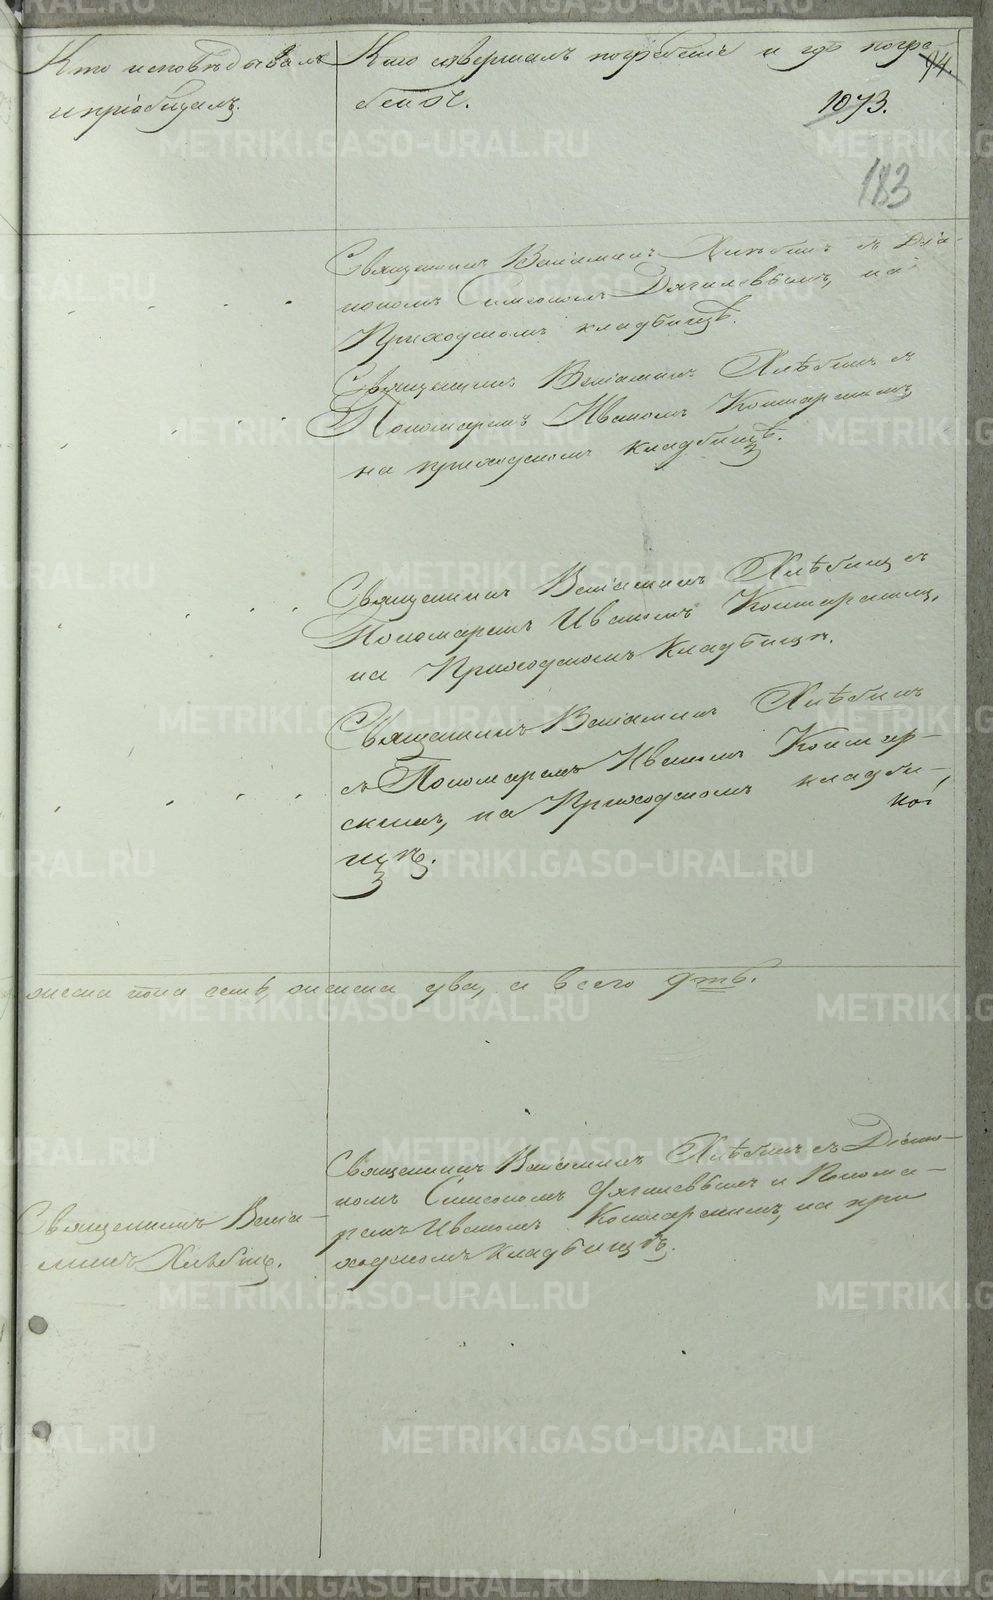 Кто исповѣдывалъ
и пріобщалъ.
Кто совершалъ погребеніе и гдѣ погре-
бены.
94.
1073.
183
Священникъ Веніаминъ Хлѣбинъ съ Діа-
кономъ Симеономъ Дягилевымъ, на
Приходскомъ кладбищѣ.
Священникъ Веніаминъ Хлѣбинъ съ
Пономаремъ Иваномъ Комарскимъ,
на приходскомъ кладбищѣ.
Священникъ Веніаминъ Хлѣбинъ съ
Пономаремъ Иваномъ
на Приходскомъ кладбищѣ.
Священникъ Веніаминъ Хлѣбинъ
съ Пономаремъ Иваномъ
скимъ, на Приходскомъ кладби-
щѣ.
два, а всего
Священникъ Веніа-
минъ Хлѣбинъ.
Священникъ Веніаминъ Хлѣбинъ съ Діако-
номъ Симеономъ Дягилевымъ и Понома-
ремъ Иваномъ на при
ходскомъ кладбищѣ.
METRIKI.GASO-URAL.RU